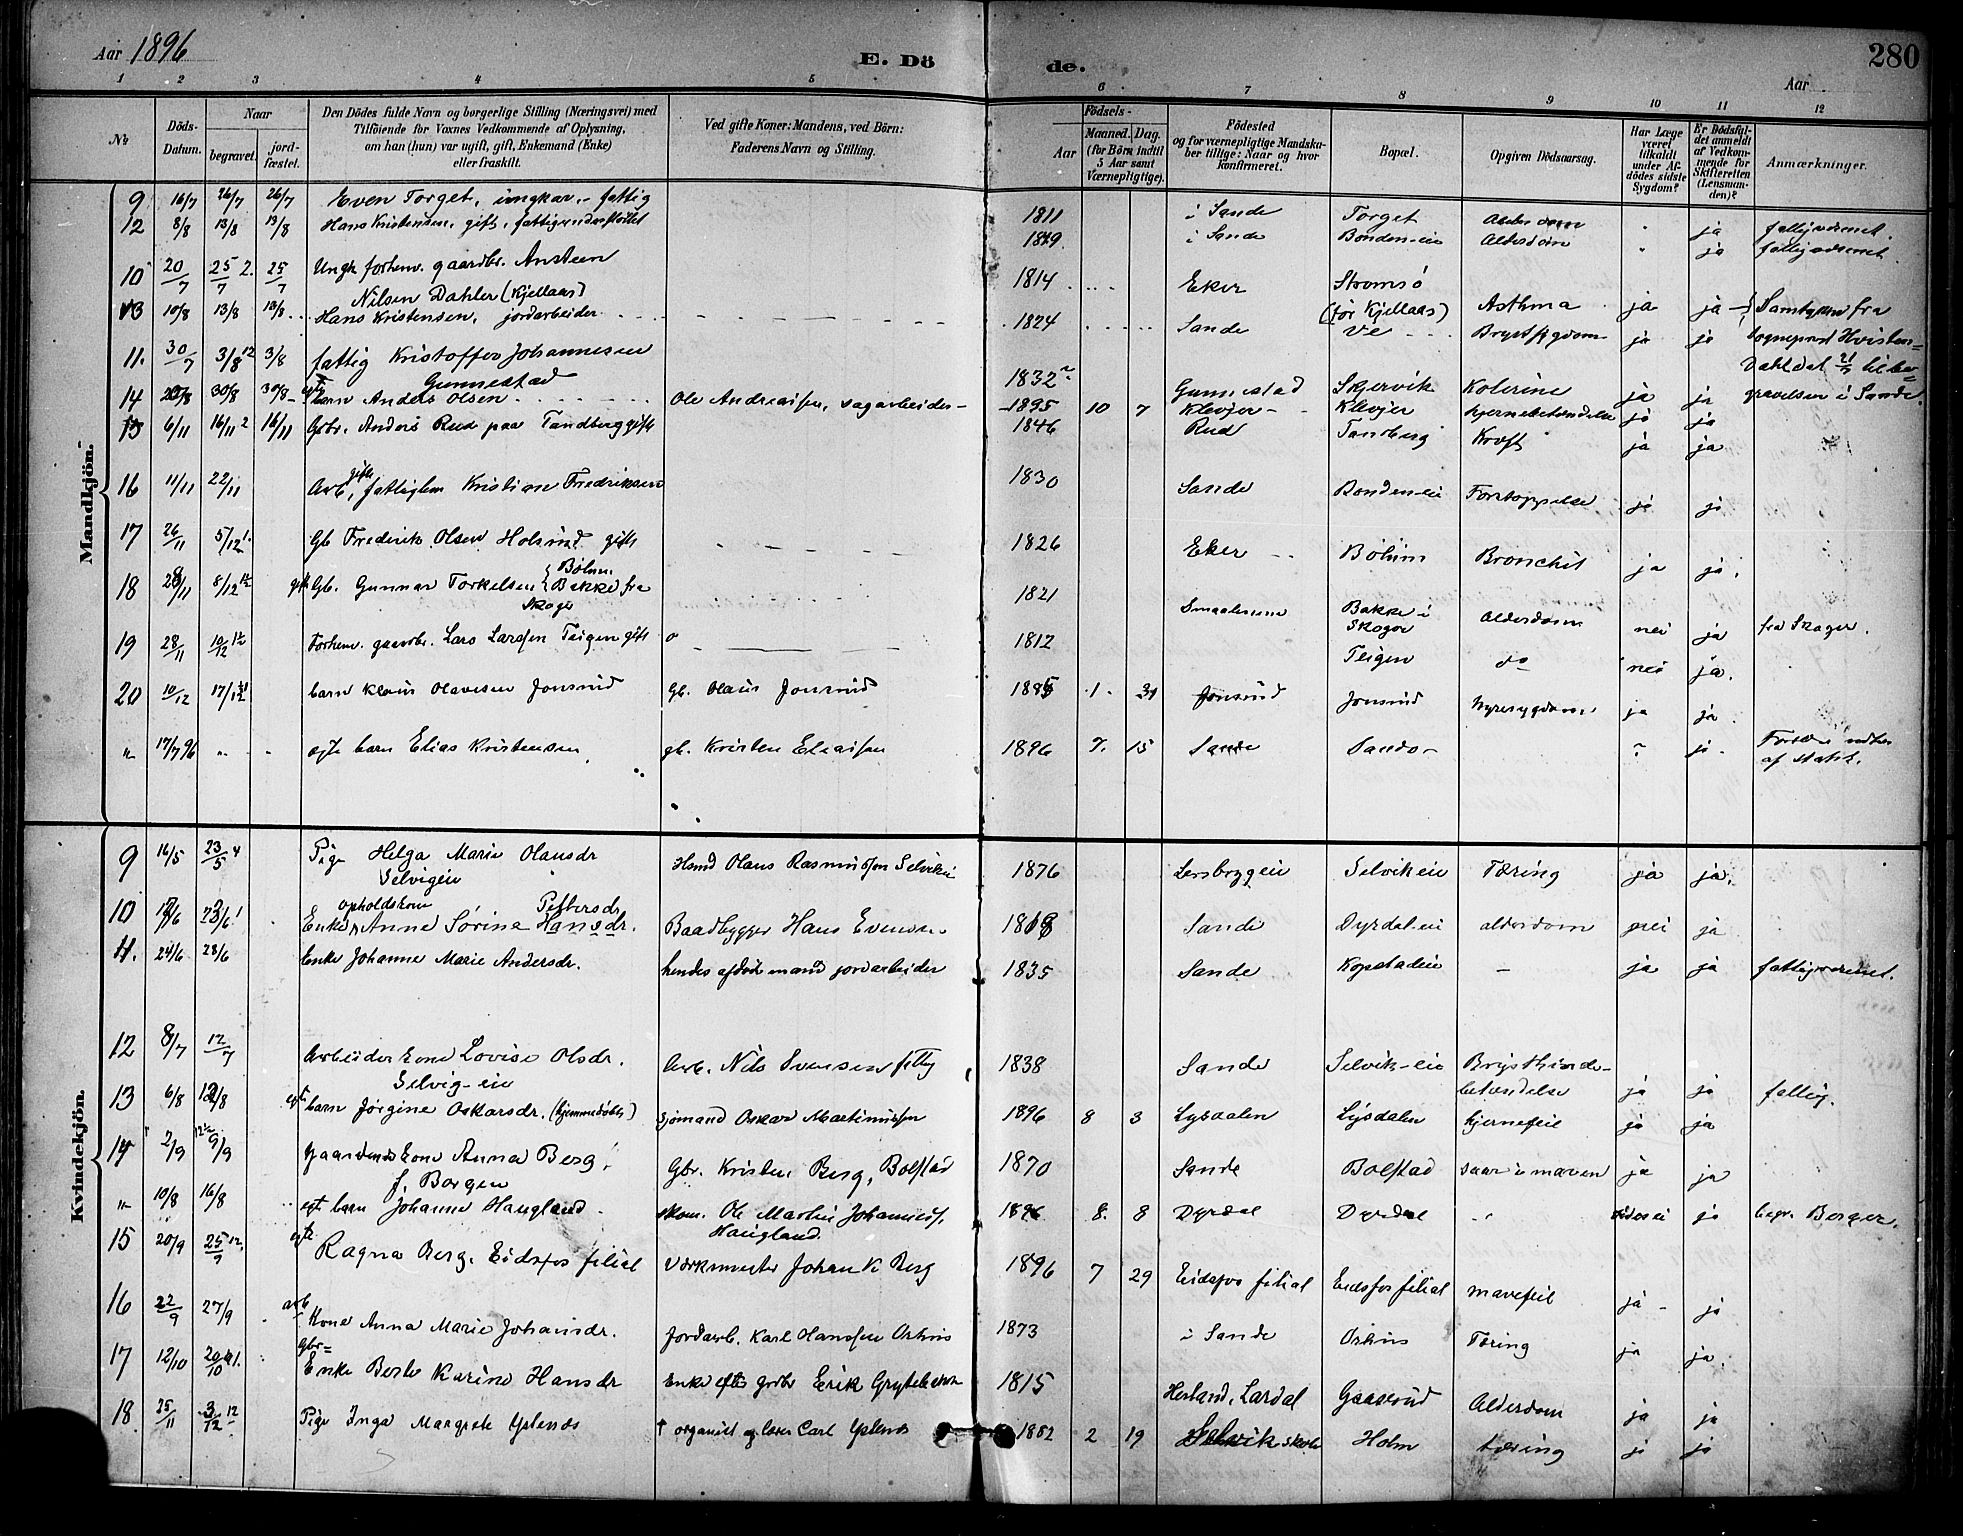 Aar 1896
E. Döde.
280
Aar
1 2 3 4 5 6 7 8 9 10 11 12
No
Döds-Datum.
Naar
begravet.
jord-fæstet.
Den Dödes fulde Navn og borgerlige Stilling (Næringsvei) med
Tilföiende for Voxnes Vedkommende af Oplysning,
om han (hun) var ugift, gift, Enkemand (Enke)
eller fraskilt.
Ved gifte Koner: Mandens, ved Börn:
Faderens Navn og Stilling.
Födsels-
Aar
Maaned. Dag.
(for Börn indtil
5 Aar samt
Værnepligtige).
Födested
og for værnepligtige Mandska-
ber tillige: Naar og hvor
konfirmeret.
Bopæl.
Opgiven Dödsaarsag.
Har Læge
været
tilkaldt
under Af-
dödes sidste
Sygdom?
Er Dödsfal-
det anmeldt
af Vedkom-
mende for
Skifteretten
(Lensman-
den)?
Anmærkninger.
Mandkjön.
9 16/7 26/7 26/7 Even Torget, ungkar, fattig 1811 i Sande Torget Alderdom " ja fattigvæsenet.
12 8/8 13/8 13/8 Hans Kristensen, gift, fattigunderstöttet 1819. i Sande Bonden-eie Alderdom " ja fattigvæsenet
10 20/7 25/7 2. 25/7 Ungk. forhenv. gaardbr. Ansteen
Nilsen Dahler (Kjellaas) 1814 Eker Stromsö
(för Kjellaas) Asthma ja ja Samtykke fra
13 10/8 13/8 13/8 Hans Kristensen, jordarbeider 1824 Sande Ve Brystsygdom ja ja Sogneprest Hvisten-
11. 30/7 3/8 12 3/8 fattig Kristoffer Johannesen
Gunnestad 1832 Gunnestad Skjervik Kolerine ja ja Dahl dat 21/7 til be-
14 30/8 30/8 egte barn Anders Olsen Ole Andreassen, sagarbeider 1895 10 7 Klevjer Klevjer hjernebetændelse ja ja gravelsen i Sande.
15 6/11 16/11 2 16/11 Gbr. Anders Rud paa Tandberg gift 1846 Rud Tandberg Kræft ja ja
16 11/11 22/11 Arb, gift, fattiglem Kristian Fredriksen 1830 Sande Bonden-eie Forstoppelse ja ja
17 26/11 5/12 1. Gb Frederik Olsen Holmind gift 1826 Eker Böhm Bronchit ja ja.
18 28/11 8/12 12 gift Gb. Gunnar Torkelsen Böhm. Bakke fra
Skoger 1821 Smaalenene Bakke i
Skoger Alderdom nei ja fra Skoger.
19 28/11 10/12 12 Forhenv. gaardbr. Lars Larssen Teigen gift 1812 Teigen do nei ja.
20 10/12 17/12 barn Klaus Olavesen Jonsrud gb. Olaus Jonsrud 1895 1. 31 Jonsrud Jonsrud Nyresygdom ja ja.
" 17/7 96 " " egte barn Elias Kristensen gb. Kristen Eliassen 1896 7. 15 Sande Sande ? ja.
Kvindekjön.
9 16/5 23/5 4 Pige Helga Marie Olausdr
Selvigeie Hsmd Olaus Rasmussen Selvikeie 1876 Lersbryggeie Selvikeie Tæring ja ja.
10 23/6 1 opholdskone Pettersdr
Enke Anne Sörine Hansdr. Baadbygger Hans Evensen 1818 Sande Dyrdal-eie alderdom nei ja
11. 24/6 28/6 Enke Johanne Marie Andersdr. hendes afdöde mand jordarbeider 1835 Sande Kopstadeie – ja ja fattigvæsenet.
12 8/7 12/7 Arbeiderkone Lovise Olsdr.
Selvig-eie Arb. Nils Svensen fattig 1838 Sande Selvik-eie Brysthinde-
betændelse ja ja fattig.
13 6/8 12/8 egte barn Jörgine Oskarsdr. (hjemmedöbt) Sjömand Oskar Martinussen 1896 8 3 Lysdalen Lysdalen hjernefeil ja ja
14 2/9 9/9 Gaardmandskone Anna Berg,
f. Borgen Gbr. Kristen Berg, Bolstad 1870 Sande Bolstad saar i maven ja ja
" 10/8 16/8 egte barn Johanne Haugland skom. Ole Martin Johanness.
Haugland. 1896 8. 8 Dyrdal Dyrdal " ja begr. Berger.
15 20/9 25/9 12. egte Ragna Berg, Eidsfos filial Værksmester Johan K Berg 1896 7 29 Eidsfos filial Eidsfos filial mavefeil ja ja
16 22/9 27/9 arb
Kone Anna Marie Johansdr. Jordarb. Karl Hanssen Oshus 1873 i Sande Oshus Tæring ja ja.
17 12/10 20/10 1. Gbr-
Enke Berte Karine Hansdr Enke efter grdbr Erik Grytebekk 1815 Hesland, Lardal Gaaserud Alderdom ja ja
18 25/11 3/12 12 Pige Inga Margrete Yslends † organist og lærer Carl Yslends 1882 2 19 Selvik skole Holm tæring ja ja